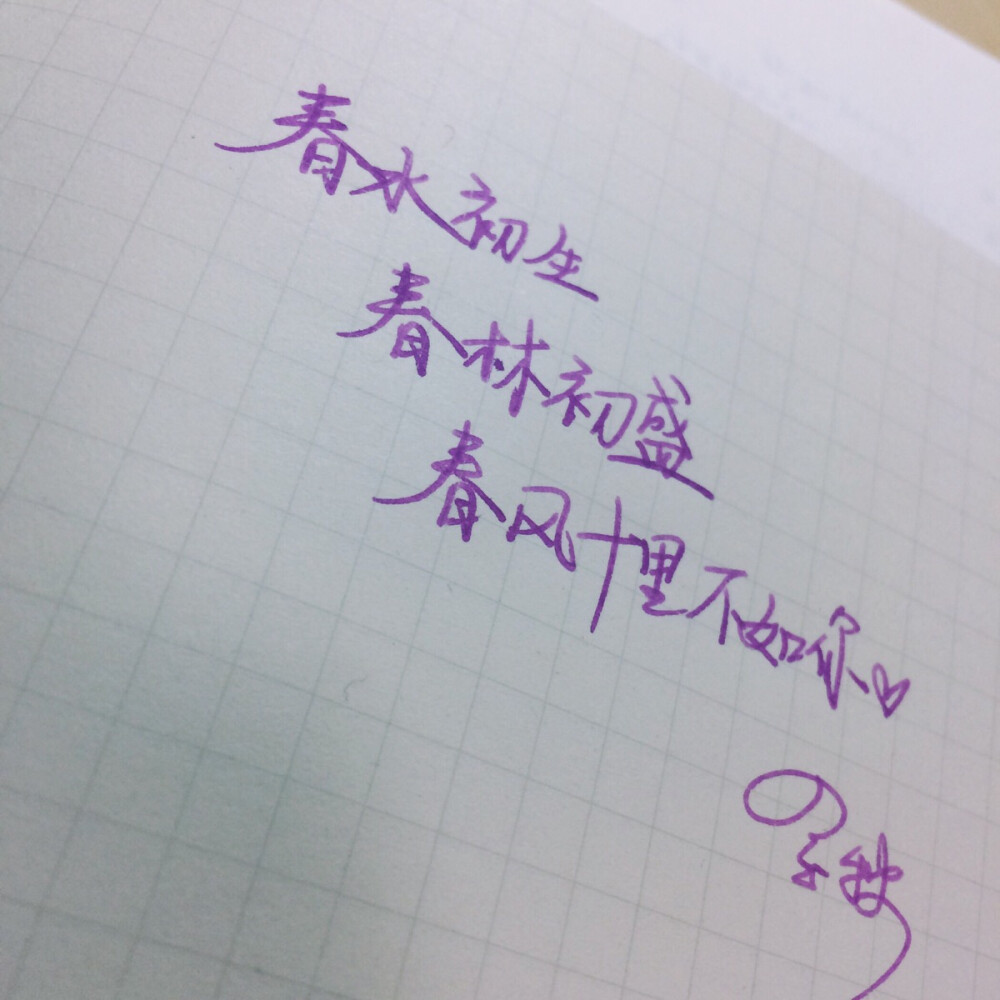 春水初生
春林初盛
春风十里不如你♡